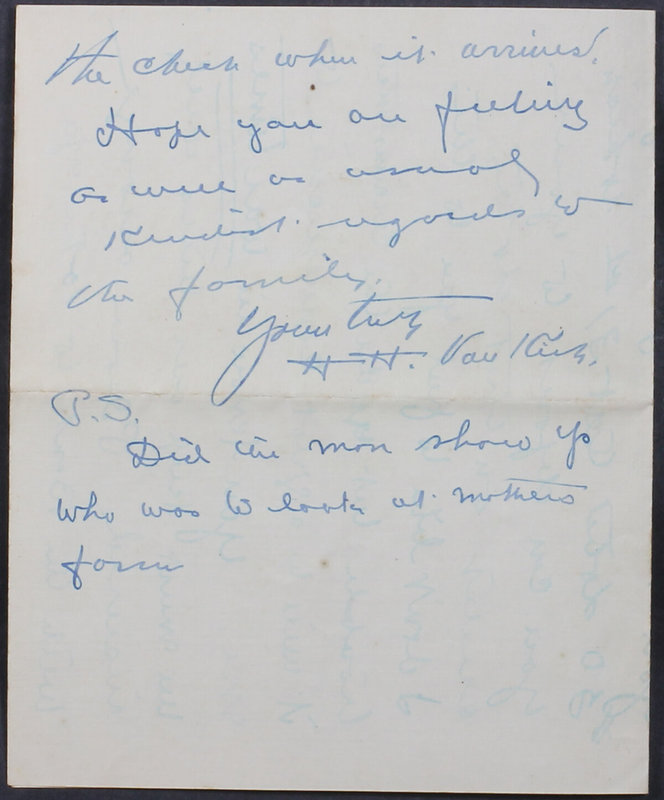 the check when it arrives.
Hope you are feeling
as well as usual
Kindest regards to
the family.
Yours truly
H. H. Van Kirk.
P.S.
Did the man show up
who was to look at mothers
farm